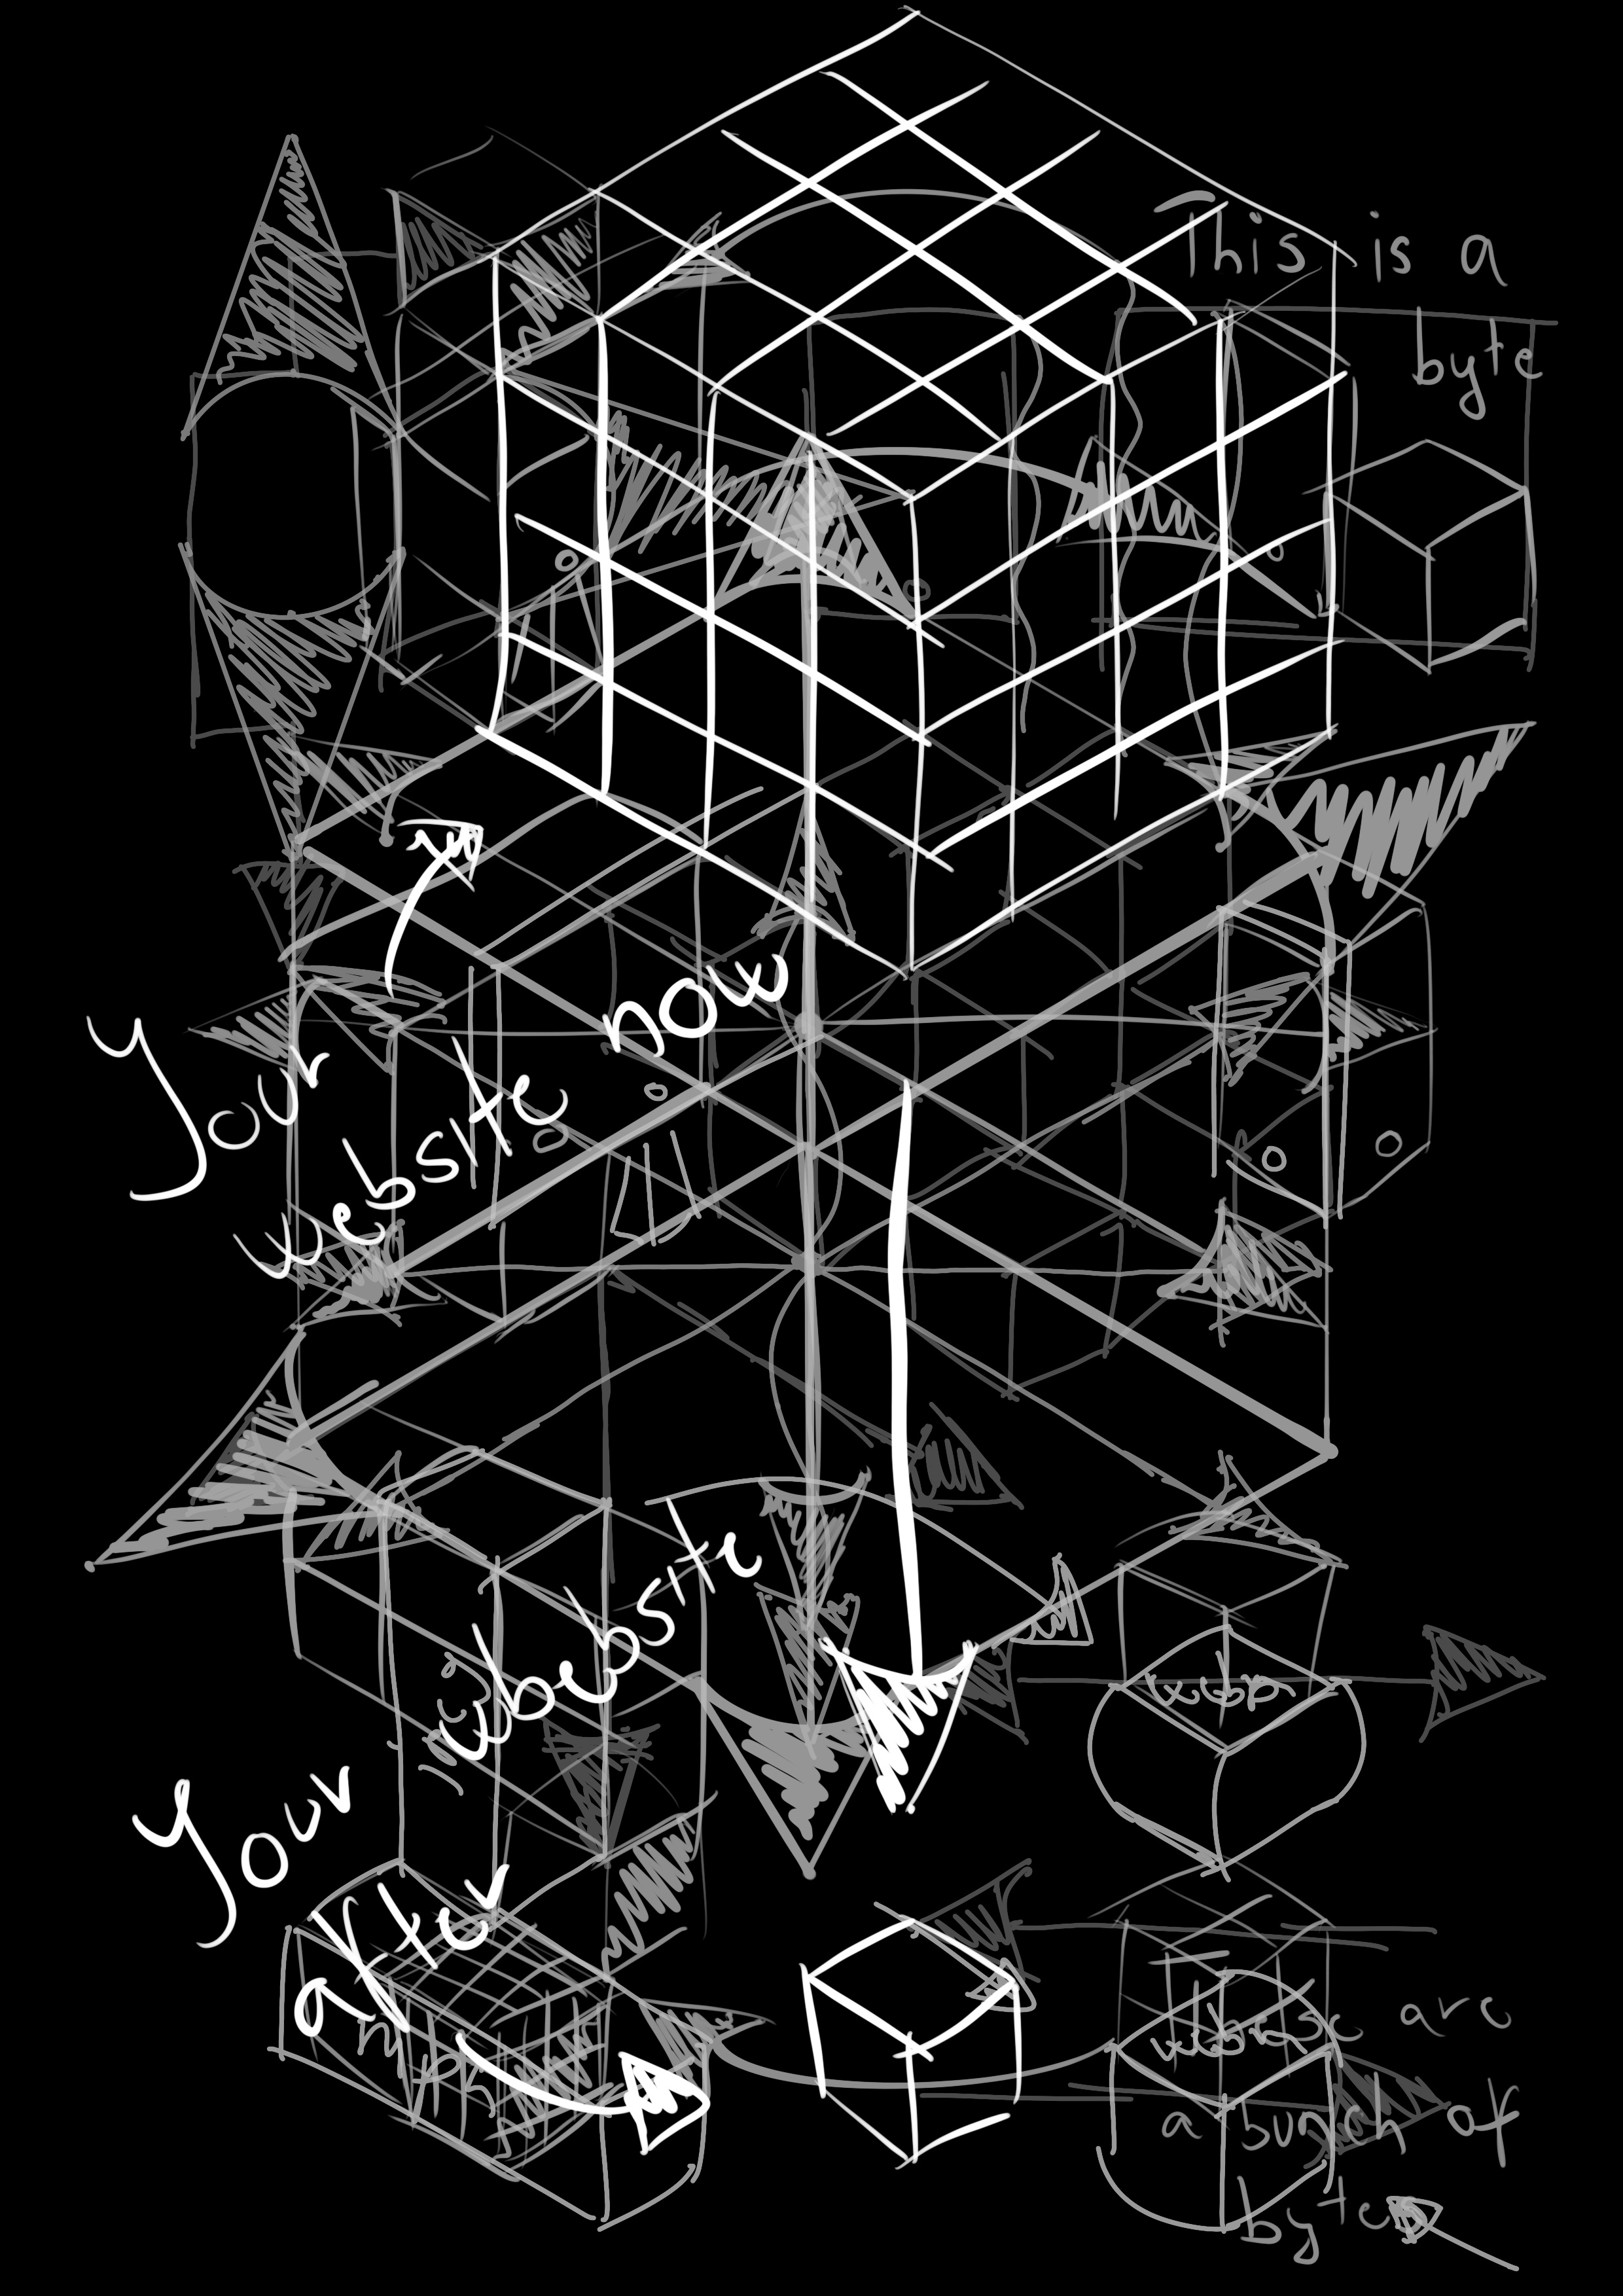 This is a
byte
Your
website now
Your website
after
webp
these are
a bunch of
bytes